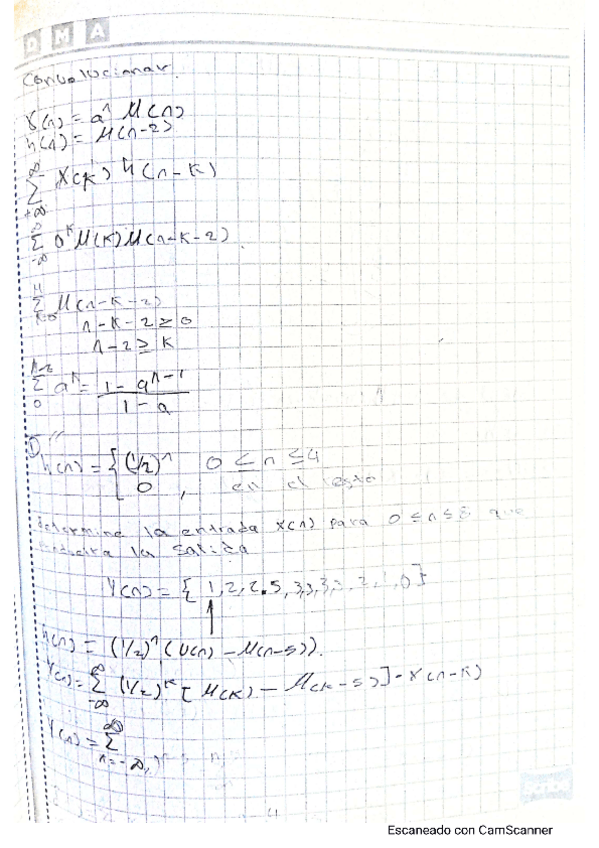 D M A
Convolucionar.
X(n) = a^n μ(n)
h(n) = μ(n-2)
∞
∑ X(k) h(n-k)
+∞
∞
∑ a^k μ(k) μ(n-k-2).
-∞
∑ μ(n-k-2)
n-k-2 ≥ 0
n-2 ≥ k
n-2
∑ a^k = 1 - a^(n-1) / 1 - a
0
h(n) = { (1/2)^n 0 ≤ n ≤ 4
0 , en el resto
determine la entrada x(n) para 0 ≤ n ≤ 8 que
la salida
Y(n) = { 1, 2, 2.5, 3, 3, 3, 2, 1, 0 }
↑
h(n) = (1/2)^n (U(n) - μ(n-5)).
Y(n) = ∑ (1/2)^k [μ(k) - μ(k-5)] · X(n-k)
-∞
∞
Y(n) = ∑
n=-∞
Escaneado con CamScanner